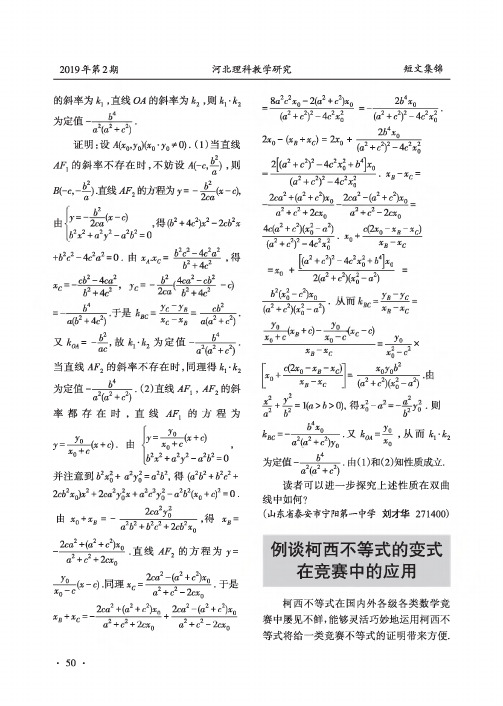 2019年第2期
河北理科教学研究
短文集锦
的斜率为 k₁,直线 OA 的斜率为 k₂,则 k₁·k₂
为定值 -b⁴/(a²(a²+c²)).
证明:设 A(x₀,y₀)(x₀·y₀≠0).(1)当直线
AF₁ 的斜率不存在时,不妨设 A(-c,b²/a),则
B(-c,-b²/a).直线 AF₂ 的方程为 y=-b²/(2ca)(x-c),
由{y=-b²/(2ca)(x-c) b²x²+a²y²-a²b²=0,得(b²+4c²)x²-2cb²x
+b²c²-4c²a²=0.由 x_A x_C=(b²c²-4c²a²)/(b²+4c²),得
x_C=-(cb²-4ca²)/(b²+4c²),y_C=-b²/(2ca)((4ca²-cb²)/(b²+4c²)-c)
=-b⁴/(a(b²+4c²)).于是 k_BC=(y_C-y_B)/(x_C-x_B)=cb²/(a(a²+c²)).
又 k_OA=-b²/(ac),故 k₁·k₂ 为定值 -b⁴/(a²(a²+c²)).
当直线 AF₂ 的斜率不存在时,同理得 k₁·k₂
为定值 -b⁴/(a²(a²+c²)).(2)直线 AF₁,AF₂ 的斜
率都存在时,直线 AF₁ 的方程为
y=y₀/(x₀+c)(x+c).由{y=y₀/(x₀+c)(x+c) b²x²+a²y²-a²b²=0,
并注意到 b²x₀²+a²y₀²=a²b²,得(a²b²+b²c²+
2cb²x₀)x²+2ca²y₀²x+a²c²y₀²-a²b²(x₀+c)²=0.
由 x₀+x_B=-2ca²y₀²/(a²b²+b²c²+2cb²x₀),得 x_B=
-(2ca²+(a²+c²)x₀)/(a²+c²+2cx₀).直线 AF₂ 的方程为 y=
y₀/(x₀-c)(x-c).同理 x_C=(2ca²-(a²+c²)x₀)/(a²+c²-2cx₀).于是
x_B+x_C=-(2ca²+(a²+c²)x₀)/(a²+c²+2cx₀)+(2ca²-(a²+c²)x₀)/(a²+c²-2cx₀)
=(8a²c²x₀-2(a²+c²)x₀)/((a²+c²)²-4c²x₀²)=-2b⁴x₀/((a²+c²)²-4c²x₀²).
2x₀-(x_B+x_C)=2x₀+2b⁴x₀/((a²+c²)²-4c²x₀²)
=2[(a²+c²)²-4c²x₀²+b⁴]x₀/((a²+c²)²-4c²x₀²).x_B-x_C=
-(2ca²+(a²+c²)x₀)/(a²+c²+2cx₀)-(2ca²-(a²+c²)x₀)/(a²+c²-2cx₀)=
4c(a²+c²)(x₀²-a²)/((a²+c²)²-4c²x₀²).x₀+c(2x₀-x_B-x_C)/(x_B-x_C)
=x₀+[(a²+c²)²-4c²x₀²+b⁴]x₀/(2(a²+c²)(x₀²-a²))=
b²(x₀²-c²)x₀/((a²+c²)(x₀²-a²)).从而 k_BC=(y_B-y_C)/(x_B-x_C)=
(y₀/(x₀+c)(x_B+c)-y₀/(x₀-c)(x_C-c))/(x_B-x_C)=y₀/(x₀²-c²)×
[x₀+c(2x₀-x_B-x_C)/(x_B-x_C)]=x₀y₀b²/((a²+c²)(x₀²-a²)).由
x²/a²+y²/b²=1(a>b>0),得 x₀²-a²=-a²/b² y₀².则
k_BC=-b⁴x₀/(a²(a²+c²)y₀).又 k_OA=y₀/x₀,从而 k₁·k₂
为定值 -b⁴/(a²(a²+c²)).由(1)和(2)知性质成立.
读者可以进一步探究上述性质在双曲
线中如何?
(山东省泰安市宁阳第一中学 刘才华 271400)
例谈柯西不等式的变式
在竞赛中的应用
柯西不等式在国内外各级各类数学竞
赛中屡见不鲜,能够灵活巧妙地运用柯西不
等式将给一类竞赛不等式的证明带来方便.
·50·